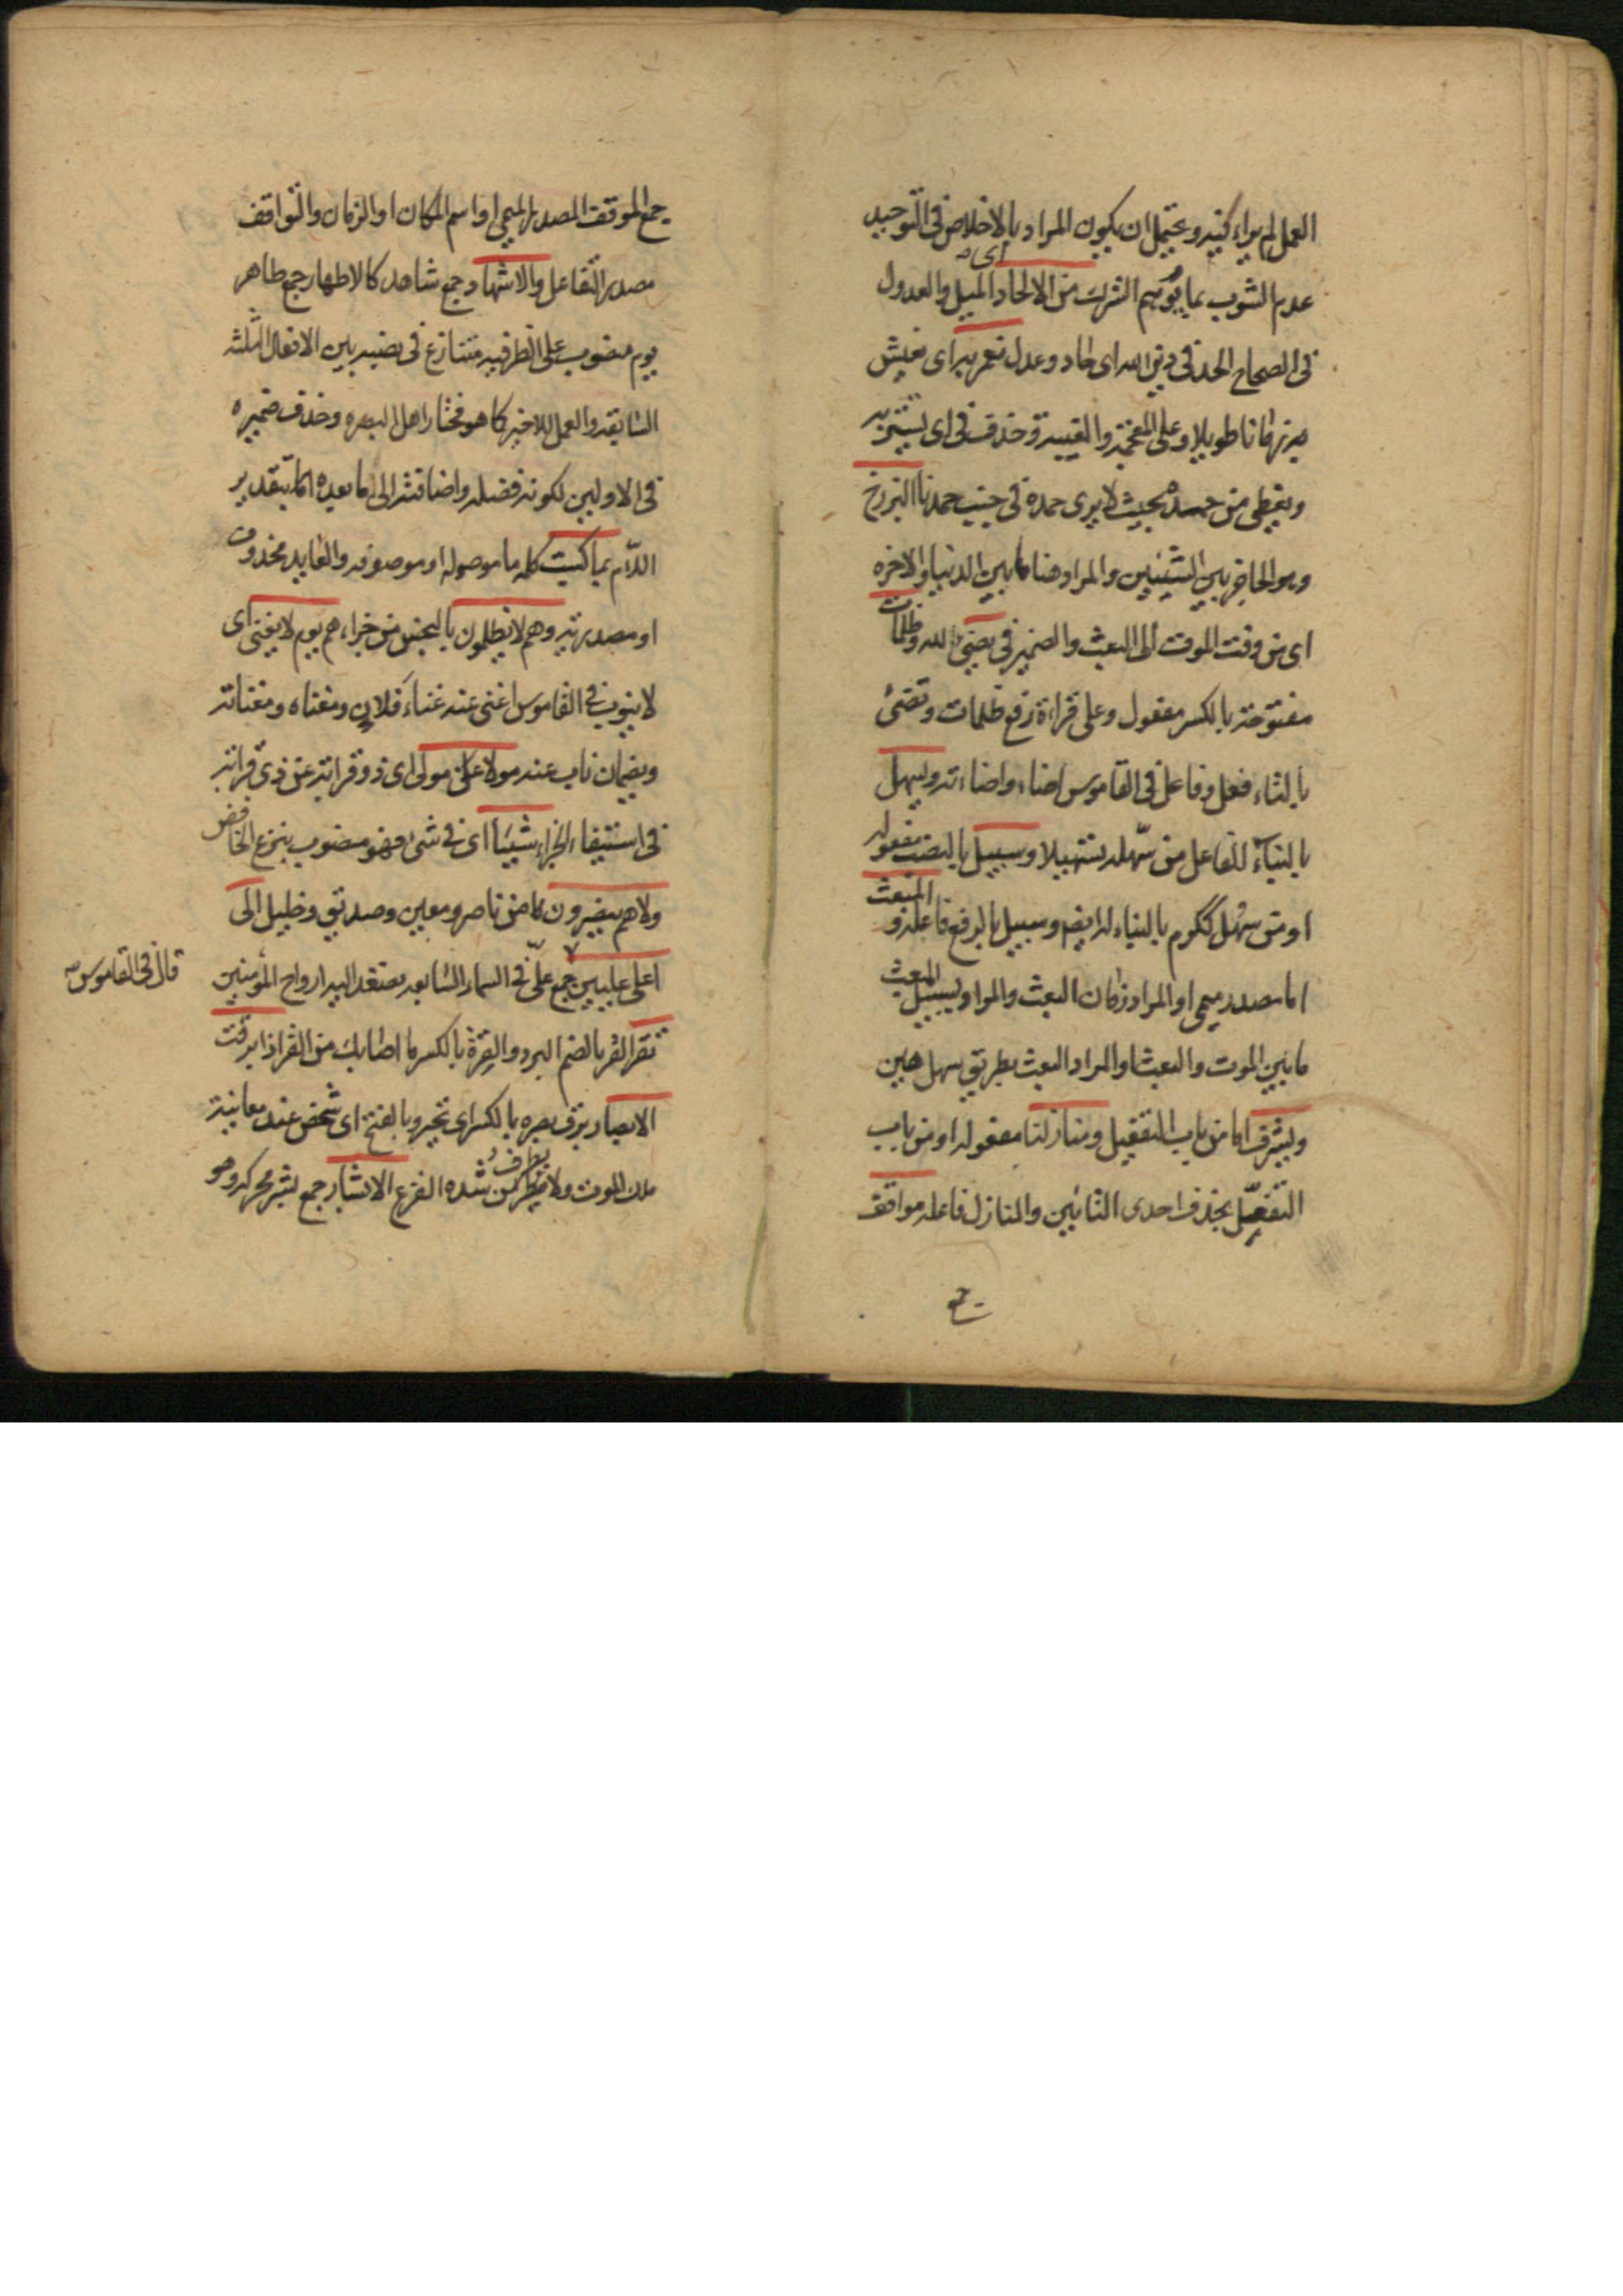 العمل لم يراء فيه ويحتمل ان يكون المراد بالاخلاص فى التوحيد
عدم الشوب بما يوهم الشرك من الالحاد اى الميل والعدول
فى الصحاح الحد فى دين الله اى حاد وعدل نعمر به اى نعيش
زمانا طويلا وعلى وحذف فى اى
ويغطى من حمده بحيث لا يرى حمده فى جنب حمدنا البرزخ
وهو الحاجز بين الشيئين والمراد هنا ما بين الدنيا والاخره
اى من وقت الموت الى البعث والضمير فى يضئ لله وظلمات
مفتوحة بالكسر مفعول وعلى قراءة رفع ظلمات وتضئ
بالتاء فعل وفاعل فى القاموس اضاء واضاءته ويسهل
بالياء للفاعل من سهله تسهيلا وسبيل بالنصب مفعوله
او من سهل ككرم بالياء ايضا وسبيل بالرفع فاعله و المبعث
اما مصدر ميمى او المراد زمان البعث والمراد بسبيل المبعث
ما بين الموت والبعث او المراد البعث بطريق سهل هين
ويشرف اما من باب التفعيل ومنازلنا مفعوله او من باب
التفعل بحذف احدى التائين والمنازل فاعله مواقف
جمع
جمع الموقف المصدر الميمى او اسم المكان او الزمان والتواقف
مصدر التفاعل والاشهاد جمع شاهد كالاطهار جمع طاهر
يوم منصوب على الظرفيه متنازع فى نصبه بين الافعال الثلثه
السابقه والعمل للاخير كما هو مختار اهل البصره وحذف ضميره
فى الاولين لكونه فضله واضافته الى ما بعده بتقدير
اللام بما كسبت كلمه ما موصوله او موصوفه والعايد محذوف
او مصدريه وهم لا يظلمون بالبخس من جزاءهم يوم لا يغنى اى
لا ينوب فى القاموس اغنى عنه غناء فلان ومغناه ومغناته
ويضمان ناب عنه مولى عن مولى اى ذو قرابة عن ذى قرابة
فى استيفاء الجزاء شيئا اى فى شئ فهو منصوب بنزع الخافض
ولا هم ينصرون ما من ناصر ومعين وصديق وخليل الى
اعلى عليين جمع علىّ فى السماء السابعه تصعد اليه ارواح المؤمنين
قال فى القاموس
تقر القر بالضم البرد والقرة بالكسر ما اصابك من القر اذا برقت
الابصار برق بصره بالكسر اى تحير وبالفتح اى شخص عند معاينة
ملك الموت ولا يطرف من شده الفزع الابشار جمع بشر محركه وهو